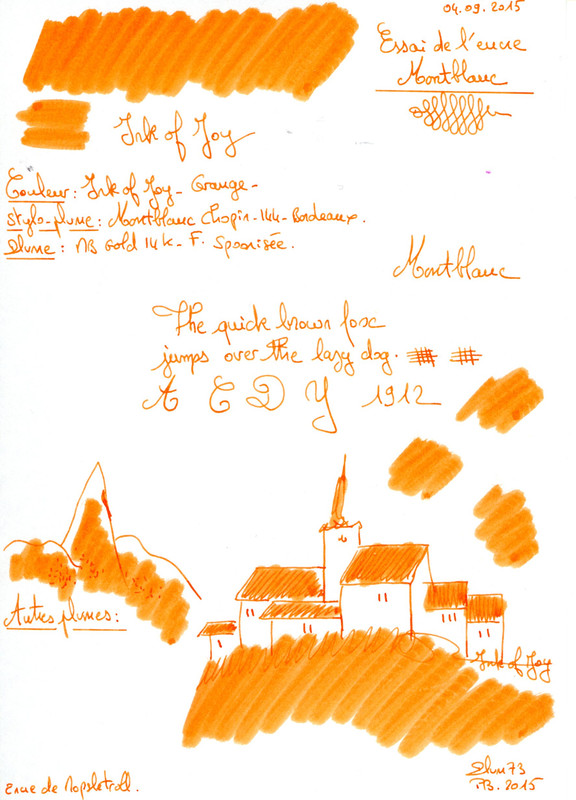 04.09.2015
Essai de l'encre
Montblanc
Ink of Joy
Couleur : Ink of Joy - Orange -
Stylo-plume : Montblanc Chopin - 144 - Bordeaux.
Plume : MB Gold 14k - F. Spoonisée.
Montblanc
The quick brown fox
jumps over the lazy dog.
A E D Y 1912
Autres plumes :
Ink of Joy
Plum73
MB. 2015
Encre de